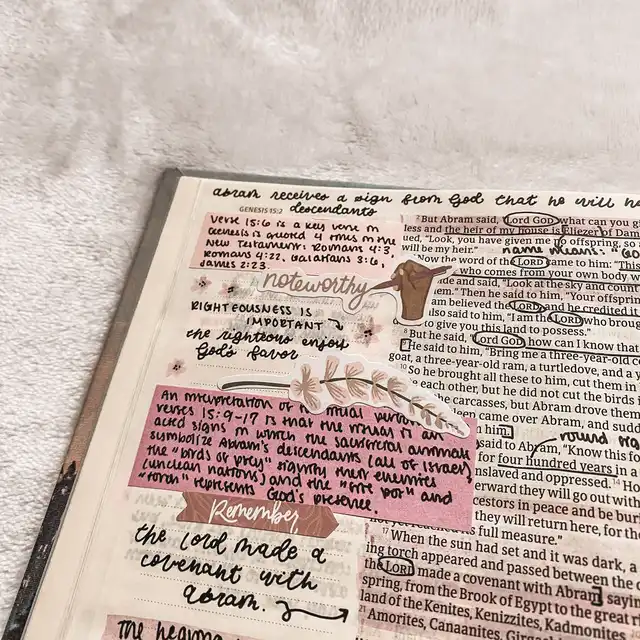 abram receives a sign from God that he will
descendants
GENESIS 15:2
verse 15:6 is a key verse in
Genesis is quoted 4 times in the
New Testament: Romans 4:3,
Romans 4:22, Galatians 3:6,
James 2:23.
noteworthy
RIGHTEOUSNESS IS
IMPORTANT
the righteous enjoy
God's favor
An interpretation of
verses 15:9-17 is that the ritual is an
acted signs in which the sacrificial animals
symbolize Abram's descendants (all of Israel)
the "birds of prey" signify their enemies
(unclean nations) and the "fire pot" and
"torch" represents God's presence.
Remember
the Lord made a
covenant with
abram.
the
2 But Abram said, Lord GOD what can you
less and the heir of my house is Eliezer of
ued, "Look, you have given me no offspring, so
will be my heir."
name means: "
Now the word of the LORD came to him: "This
who comes from your own body
ide and said, "Look at the sky and count
em." Then he said to him, "Your offspring
am believed the LORD and he credited it
also said to him, "I am the LORD who
to give you this land to possess."
8 But he said, Lord GOD how can I know
9 He said to him, "Bring me a three-year-old
goat, a three-year-old ram, a turtledove, and a
10 So he brought all these to him, cut them in
each other, but he did not cut the birds
the carcasses, but Abram drove them
een came over Abram, and
m him.
round
said to Abram, "Know this
for four hundred years in a
nslaved and oppressed. 14
erward they will go out with
cestors in peace and be
they will return here, for the
full measure."
When the sun had set and it was dark, a
ing torch appeared and passed between the
the LORD made a covenant with Abram, saying
spring, from the Brook of Egypt to the great
land of the Kenites, Kenizzites, Kadmonites
Amorites, Canaanites,